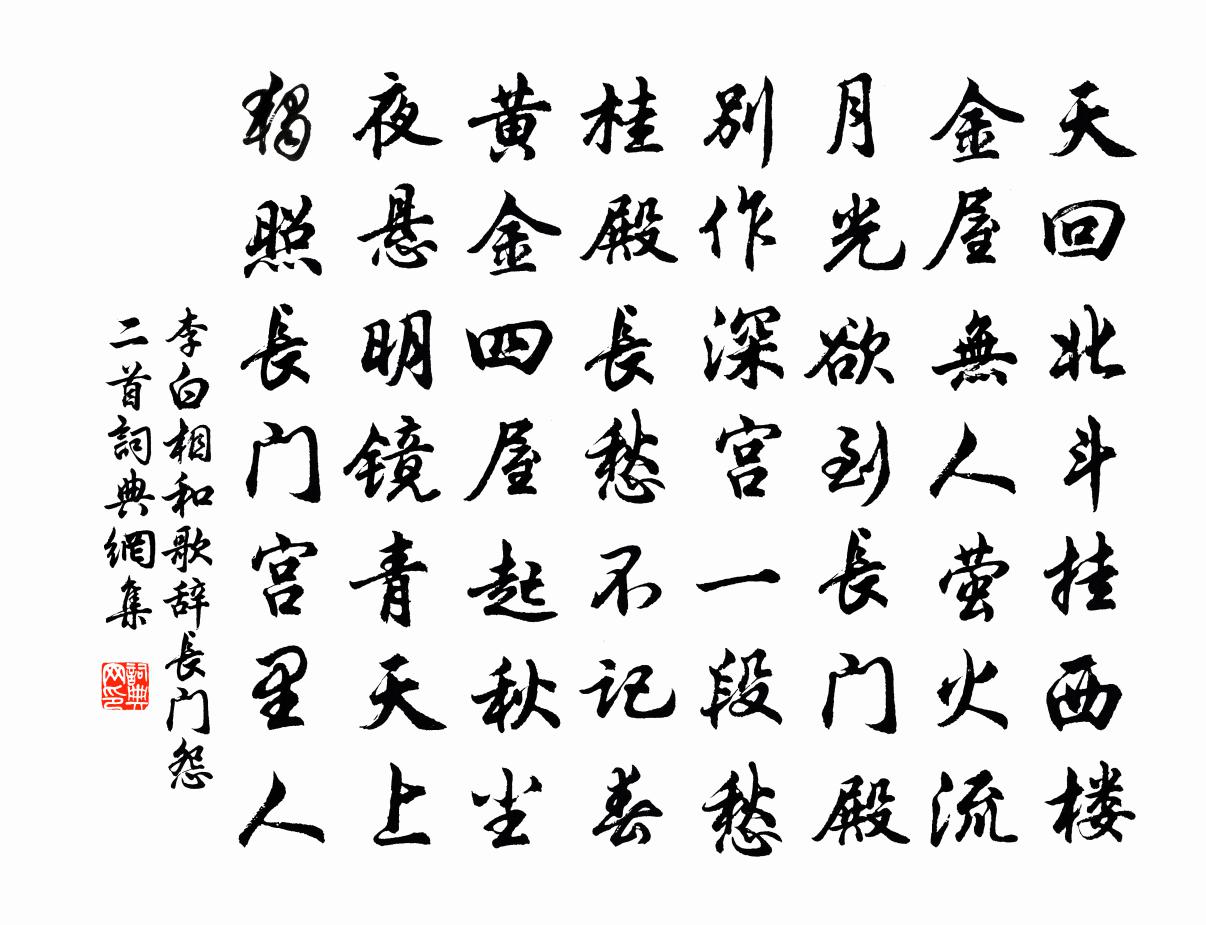 天回北斗挂西楼
金屋無人萤火流
月光欲到長门殿
别作深宫一段愁
桂殿長愁不记春
黄金四屋起秋尘
夜悬明镜青天上
独照長门宫里人
李白相和歌辞長门怨
二首詞典網集
詞典
网印